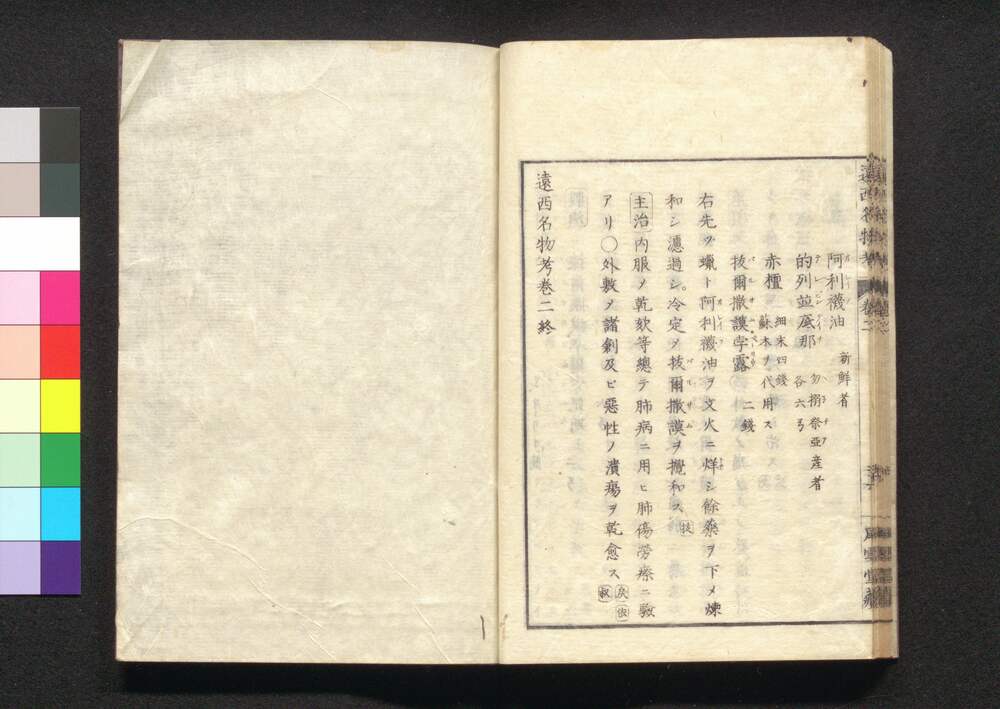 阿利襪油 新鮮者
的列並底那 勿搦祭亜産者 各六弓
赤檀 細末四錢 蘇木ヲ代用ス
抜爾撒謨孛露 二錢
右先ヅ蠟ト阿利襪油ヲ文火ニ烊シ餘藥ヲ下メ煉
和シ濾過シ冷定メ抜爾撒謨ヲ攪和ス
主治 内服メ乾欬等總テ肺病ニ用ヒ肺傷勞瘵ニ效
アリ〇外敷メ諸創及ビ惡性ノ潰瘍ヲ乾愈ス
遠西名物考巻二終
遠西名物考 巻二